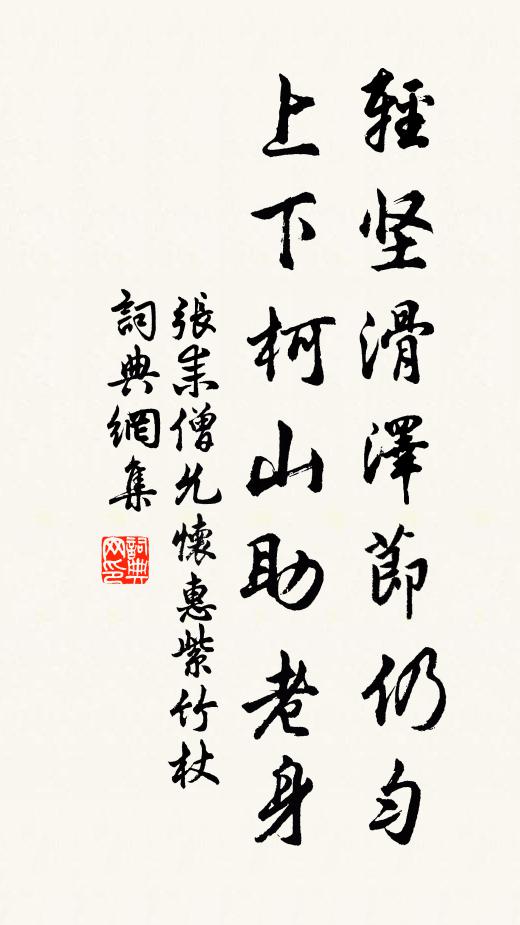 輕堅滑澤節仍勻
上下柯山助老身
張耒僧允懷惠紫竹杖
詞典網集
詞典
网印